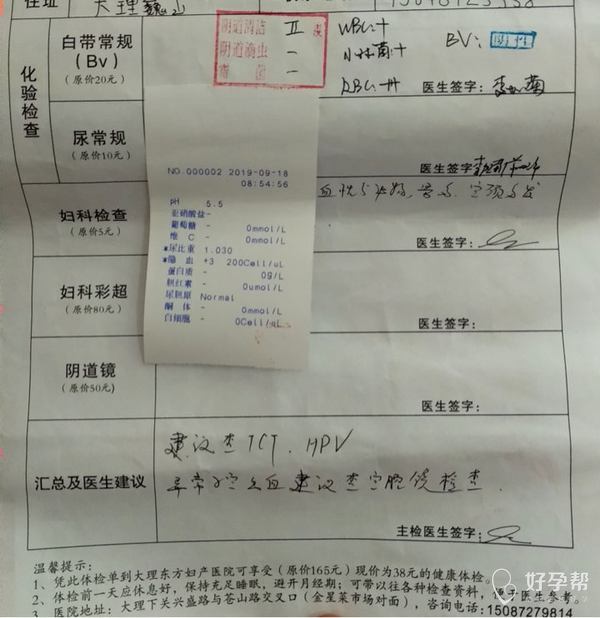 住址 大理巍山
化验检查
白带常规
(Bv)
(原价20元)
阴道清洁 II 度
阴道滴虫 —
霉菌 —
WBC:+
BV: 阴性
RBC:卅
医生签字:
尿常规
(原价10元)
医生签字
NO.000002 2019-09-18
08:54:56
pH 5.5
亚硝酸盐-
葡萄糖 - 0mmol/L
维 C - 0mmol/L
*尿比重 1.030
*隐 血 +3 200Cell/uL
蛋白质 - 0g/L
胆红素 - 0umol/L
尿胆原 Normal
酮 体 - 0mmol/L
白细胞 - 0Cell/uL
妇科检查
(原价5元)
医生签字:
妇科彩超
(原价80元)
医生签字:
阴道镜
(原价50元)
医生签字:
汇总及医生建议
建议查TCT、HPV
异常子宫出血建议查宫腔镜检查.
主检医生签字:
温馨提示:
1、凭此体检单到大理东方妇产医院可享受(原价165元)现价为38元的健康体检。
2、体检前一天应休息好,保持充足睡眠,避开月经期;可带以往各种检查资料,便于医生参考。
3、医院地址:大理下关兴盛路与苍山路交叉口(金星菜市场对面),咨询电话:15087279814
好孕帮
haoyunbang